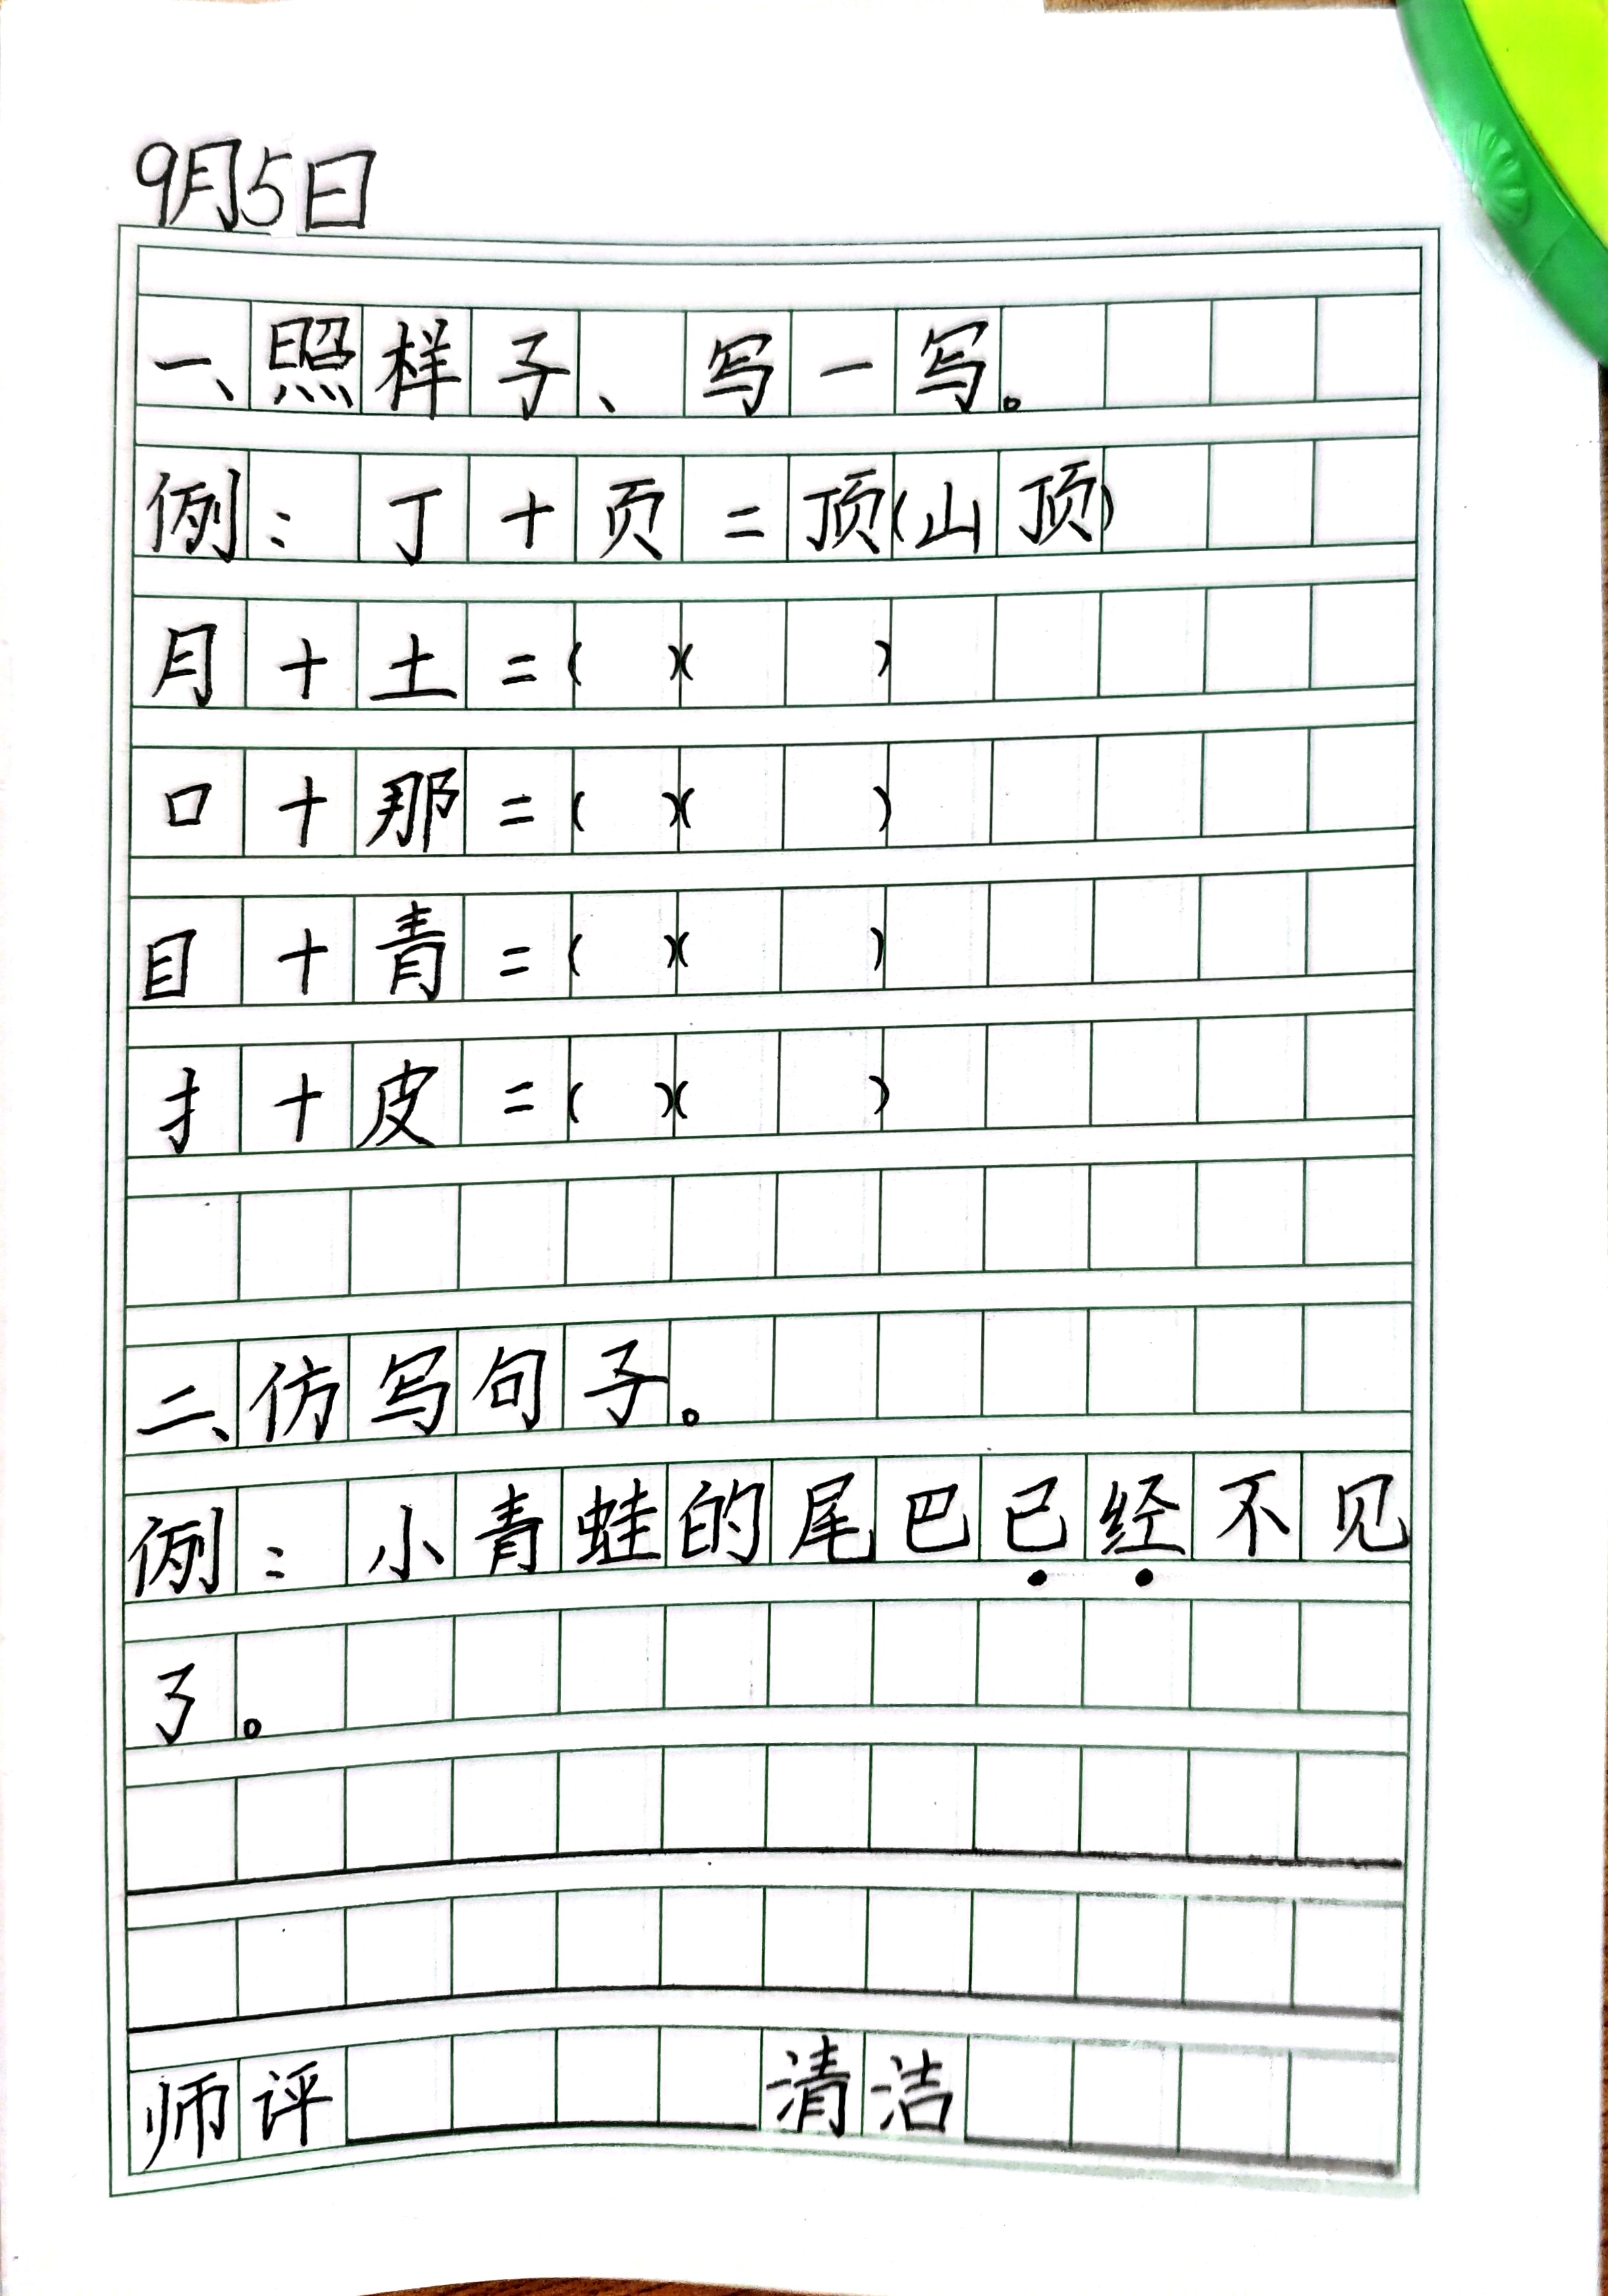 9月5日
一、照样子、写一写。
例：丁+页=顶(山顶)
月+土=( )( )
口+那=( )( )
目+青=( )( )
扌+皮=( )( )
二、仿写句子。
例：小青蛙的尾巴已经不见
了。
师评 清洁